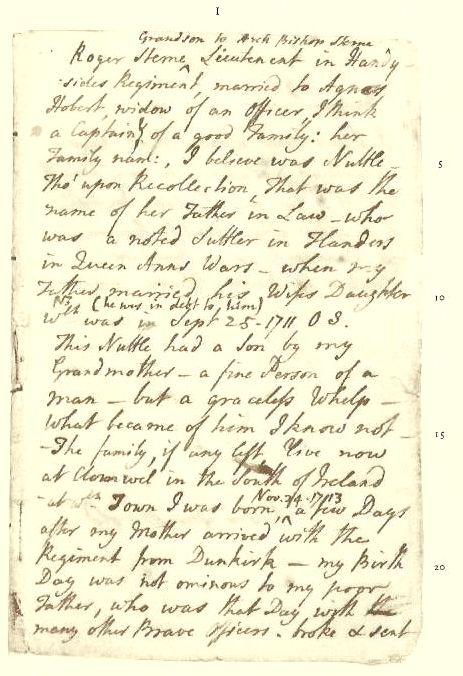 1
Grandson to Arch Bishop Sterne
Roger Sterne, Lieutenant in Handy-
sides Regiment, married to Agnes
Hobert, widow of an officer, I think
a Captain, of a good Family: her
Family name, I believe was Nuttle_
Tho' upon Recollection, That was the
name of her Father in Law_ who
was a noted Suttler in Flanders
5
in Queen Anns Wars_ when my
Father married his Wifes Daughter
10
N.B. (he was in debt to him)
wch was in Sept 25-1711 O S.
This Nuttle had a Son by my
Grandmother_ a fine Person of a
man_ but a graceless Whelp_
what became of him I know not_
15
-The family, if any left, live now
at Clomwel in the South of Ireland
Nov. 24-1713
-at wch Town I was born, ^ a few Days
after my Mother arrived with the
Regiment from Dunkirk_ my Birth
20
Day was not ominous to my poor
Father, who was that Day with
many other Brave officers. broke & sent